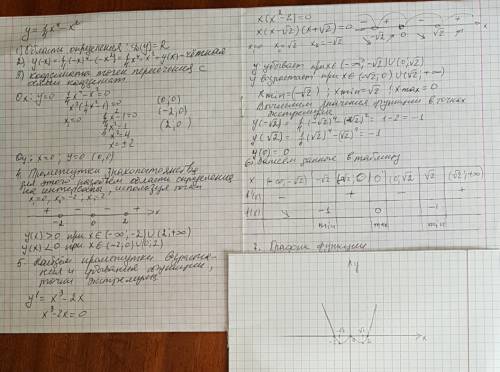 y = 1/4 x⁴ − x²
1) Область определения: D(y) = R
2) y(-x) = 1/4(-x)⁴ − (-x)² = 1/4 x⁴ − x² = y(x) − чётная
3) координаты точек пересечения с
осями координат
Ox: y=0 1/4 x⁴ − x² = 0
x²(1/4 x² − 1) = 0 (0;0)
x=0 1/4 x² − 1 = 0 (-2;0)
1/4 x² = 1 (2;0)
x² = 4
x = ±2
Oy: x=0; y=0 (0;0)
4. Промежутки знакопостоянства
для этого разобьём область определения
на интервалы, используя точки
x₁=0, x₂=-2, x₃=2
+ − − +
-2 0 2 x
y(x) > 0 при x∈(-∞;-2)∪(2;+∞)
y(x) < 0 при x∈(-2;0)∪(0;2)
5. Найдём промежутки возраста-
ния и убывания функции,
точки экстремума
y' = x³ − 2x
x³ − 2x = 0
x(x² − 2) = 0
x(x−√2)(x+√2) = 0
x=0 x=√2 x₃=-√2
− + − +
-√2 0 √2 x
y убывает при x∈(-∞;-√2)∪(0;√2)
y возрастает при x∈(-√2;0)∪(√2;+∞)
x min=(-√2); x min=√2; x max=0
Вычислим значения функции в точках
экстремума
y(-√2) = 1/4(-√2)⁴ − (-√2)² = 1−2 = −1
y(√2) = 1/4(√2)⁴ − (√2)² = −1
y(0) = 0
6) Занесём данные в таблицу
x (-∞;-√2) -√2 (-√2;0) 0 (0;√2) √2 (√2;+∞)
f'(x) − + − +
f(x) ↘ -1 0 -1
min max min
7. График функции
y
-2 -√2 0 √2 2 x